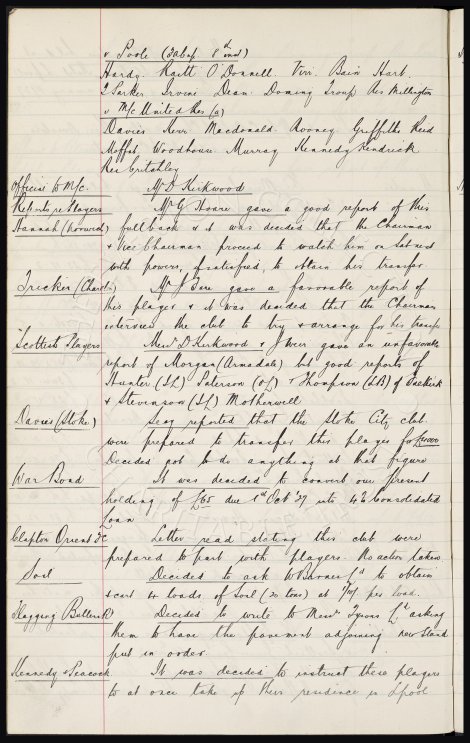 v Poole (3 Cup 8th inst)
Hardy. Raitt O'Donnell. Virr. Bain Hart.
T Parker Irvine Dean Dominy Troup Res Millington
v M/c United Res (a)
Davies Kerr Macdonald. Rooney Griffiths Reid
Moffat Woodhouse Murray Kennedy Kendrick
Res Critchley
Officers to M/c. Mr D Kirkwood
Reports re Players Mr G Hoare gave a good report of this
Hannah (Norwich) full back & it was decided that the Chairman
& Vice Chairman proceed to watch him on Saturd
with powers, if satisfied, to obtain his transfer.
Tricker (Charlton) Mr J gave a favorable report of
this player & it was decided that the Chairman
interview the club to try & arrange for his transfer
Scottish Players Messrs D Kirkwood & gave an unfavorable
report of Morgan (Armadale) but good reports of
Hunter (IL) Paterson (OL) & Thompson (LB) of
& Stevenson (IL) Motherwell
Davies (Stoke) Secy reported that the Stoke City club
were prepared to transfer this player for
Decided not to do anything at that figure
War Bond It was decided to convert our present
holding of due 1st Oct '27 into 4% Consolidated
Loan
Clapton Orient FC Letter read stating this club were
prepared to part with players. No action taken
Soil Decided to ask W Barnes Ld to obtain
& cart 4 loads of Soil (20 tons) at per load.
Flagging Bullens Rd Decided to write to Messrs Tysons Ld asking
them to have the pavement adjoining new stand
put in order.
Kennedy & Peacock It was decided to instruct these players
to at once take up their residence in Lpool